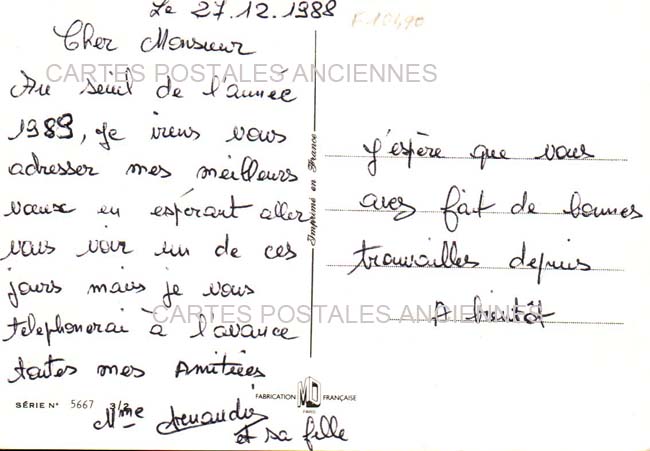 Le 27.12.1988
Cher Monsieur
CARTES POSTALES ANCIENNES
Au seuil de l'année
1989, je viens vous
adresser mes meilleurs
vœux en espérant aller
vous voir un de ces
jours mais je vous
telephonerai à l'avance
toutes mes Amitiées
Mme
et sa fille
SÉRIE N° 5667 3/2
Imprimé en France
FABRICATION MD FRANÇAISE
PARIS
J'espère que vous
avez fait de bonnes
travailles depuis
A bientôt
CARTES POSTALES ANCIENNES